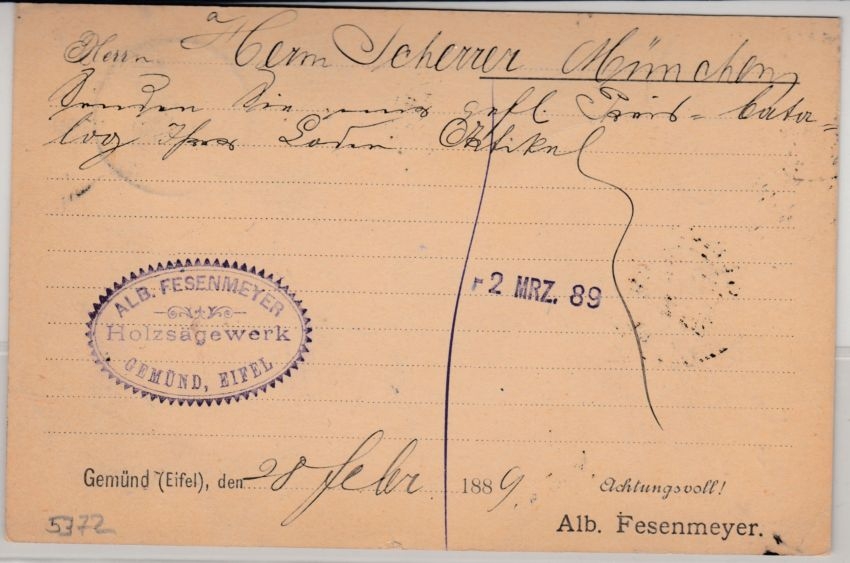 Herrn Herm Scherrer München
Senden Sie mir gefl. Preis-Cata-
log Ihrer Loden Artikel
ALB. FESENMEYER
Holzsägewerk
GEMÜND, EIFEL
2 MRZ. 89
Gemünd (Eifel), den 28 Febr. 1889
Achtungsvoll!
Alb. Fesenmeyer.
5372